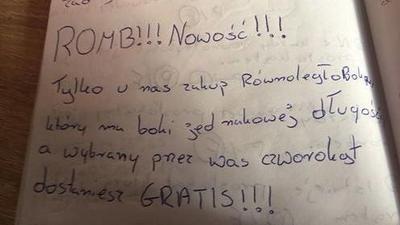 ROMB!!! Nowość!!!
Tylko u nas zakup Równoległoboku,
który ma boki jednakowej długości
a wybrany przez was czworokąt
dostaniesz GRATIS!!!